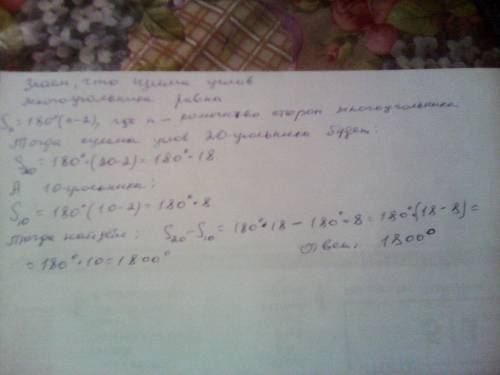 Знаем, что сумма углов
многоугольника равна
Sₙ=180°(n-2), где n - количество сторон многоугольника
Тогда сумма углов 20-угольника будет:
S₂₀=180°·(20-2)=180°·18.
А 10-угольника:
S₁₀=180°(10-2)=180°·8
Тогда найдём: S₂₀-S₁₀=180°·18-180°·8=180°·(18-8)=
=180°·10=1800°
Ответ: 1800°